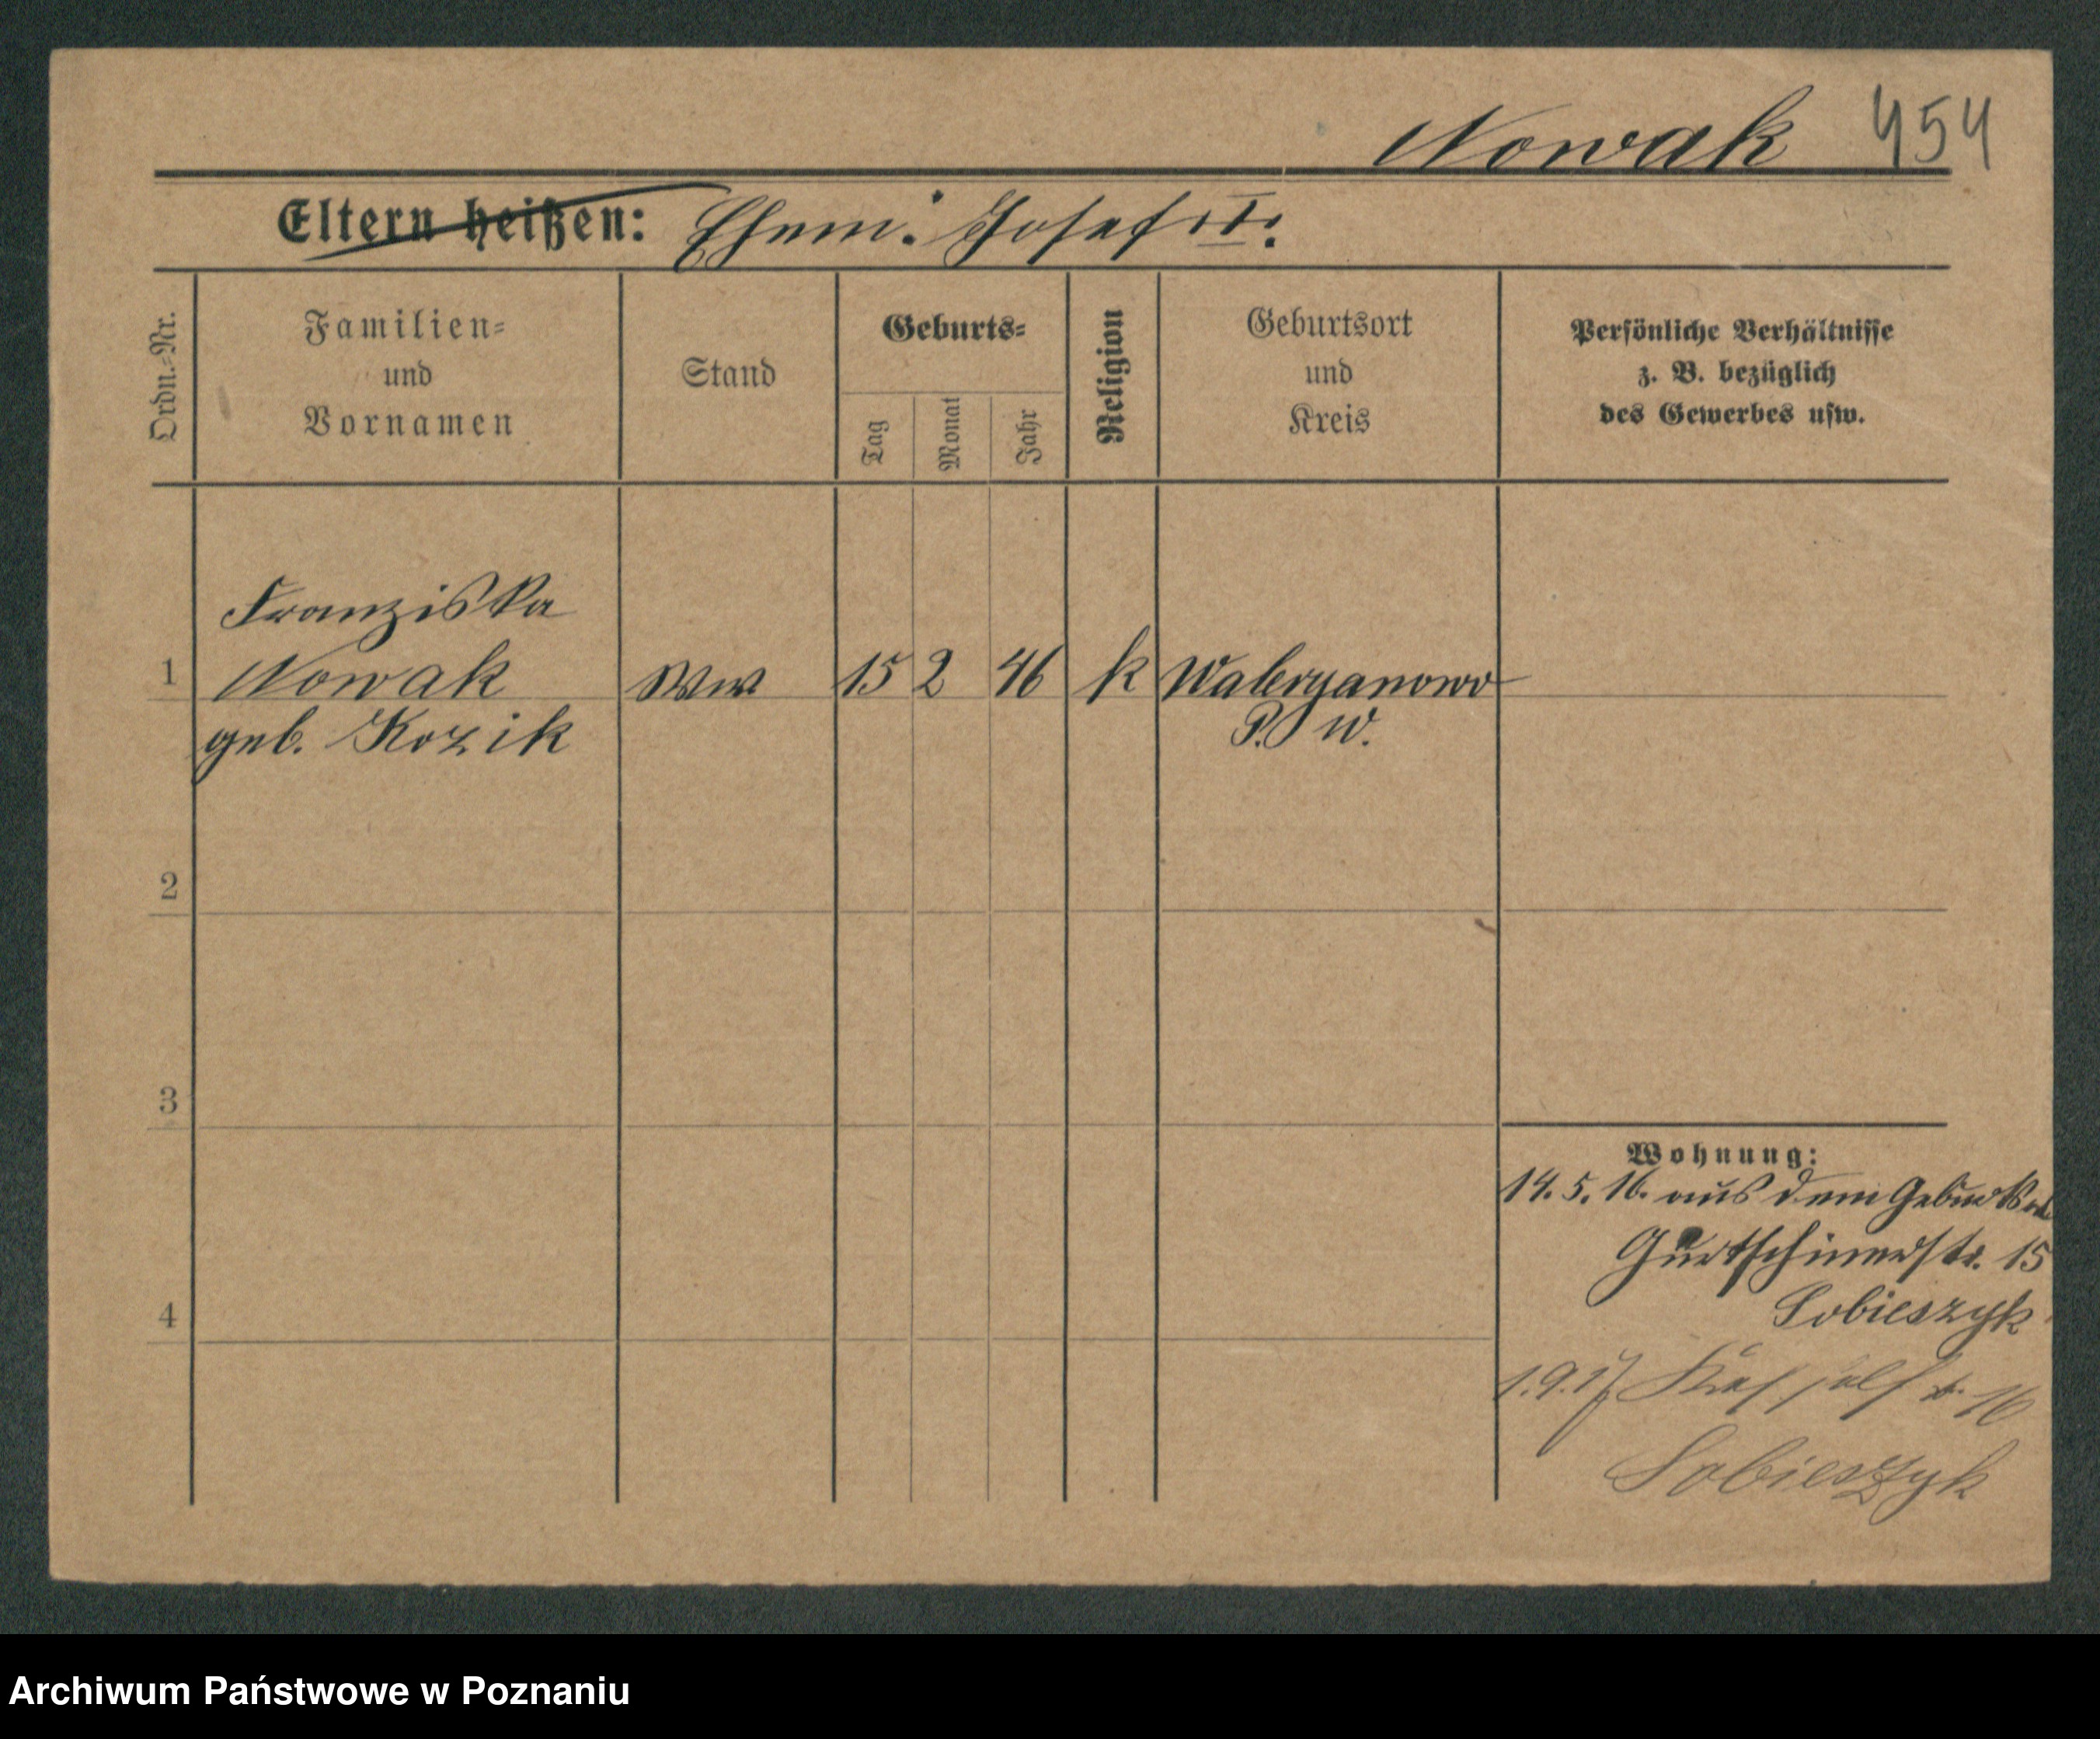 Nowak 454
Eltern heißen: Ehem. Josef
Ordn.-Nr.
Familien-
und
Vornamen
Stand
Geburts-
Tag
Monat
Jahr
Religion
Geburtsort
und
Kreis
Persönliche Verhältnisse
z. B. bezüglich
des Gewerbes usw.
Franziska
1 Nowak Ww 15 2 46 k Waleryanowo
geb. Kozik P. W.
2
3
4
Wohnung:
14. 5. 16. aus dem
Gurtschinerstr. 15
Sobieszyk
1.9.17
Sobieszyk
Archiwum Państwowe w Poznaniu